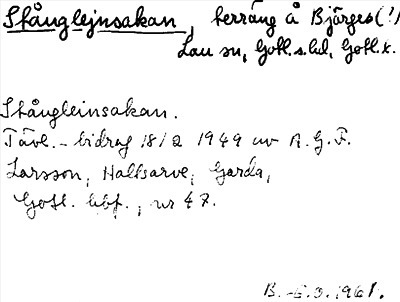 Stånglejnsakan, terräng å Bjärges (!)
Lau sn, Gotl. s. hd, Gotl. k.
Stångleinsakan.
Tävl.-bidrag 18/2 1949 av R. G. F.
Larsson, Hallsarve, Garda,
Gotl. bbf., nr 47.
B. 6.3.1961.